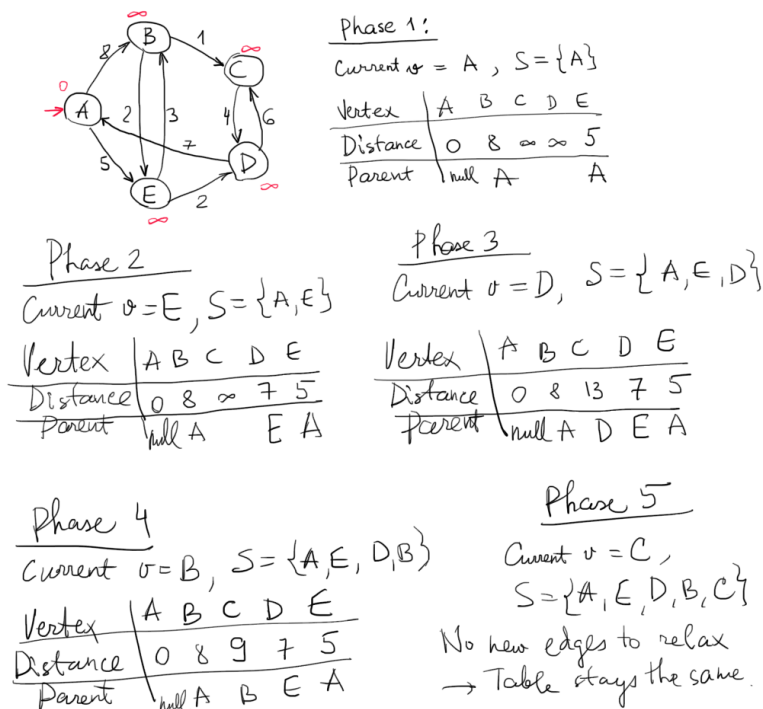 ∞
B
1
∞
8
C
0
A
2
3
4
6
7
5
D
E
2
∞
∞
Phase 1:
Current v = A , S={A}
Vertex A B C D E
Distance 0 8 ∞ ∞ 5
Parent null A A
Phase 2
Current v=E, S={A,E}
Vertex A B C D E
Distance 0 8 ∞ 7 5
Parent null A E A
Phase 3
Current v=D, S={A,E,D}
Vertex A B C D E
Distance 0 8 13 7 5
Parent null A D E A
Phase 4
Current v=B, S={A,E,D,B}
Vertex A B C D E
Distance 0 8 9 7 5
Parent null A B E A
Phase 5
Current v=C,
S={A,E,D,B,C}
No new edges to relax
→ Table stays the same.